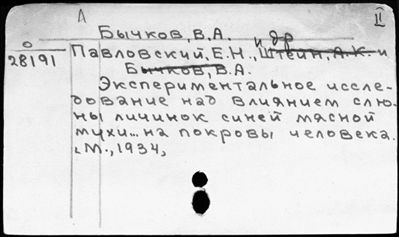 А
II
Бычков, В.А.
и др
О
28191
Павловский, Е.Н., Штейн, А.К. и
Бычков, В.А.
Экспериментальное иссле-
дование над влиянием слю-
ны личинок синей мясной
мухи... на покровы человека.
М., 1934,